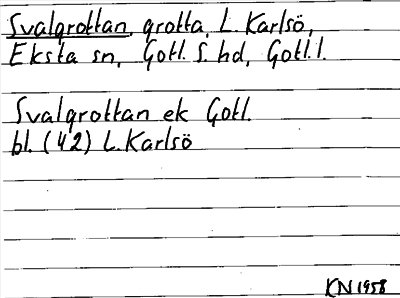 Svalgrottan, grotta, L. Karlsö,
Eksta sn, Gotl. S. hd, Gotl. l.
Svalgrottan ek Gotl.
bl. (42) L. Karlsö
KN 1958